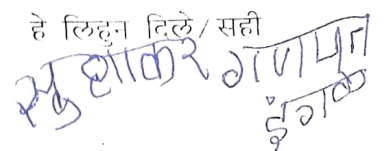 हे लिहुन दिले/सही
सुधाकर गणपत
इंगळे